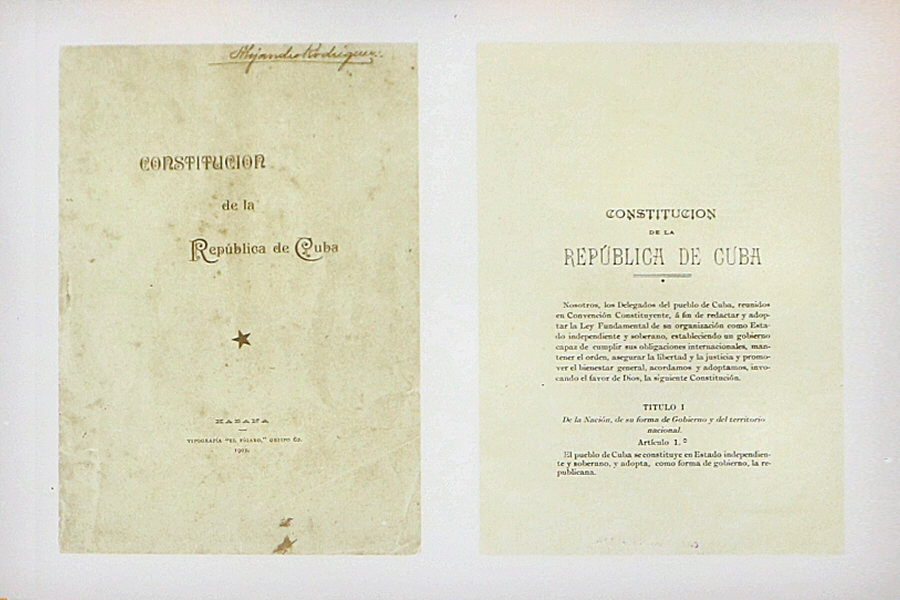 Alejandro Rodríguez
CONSTITUCION
de la
República de Cuba
HABANA
TIPOGRAFÍA "EL FÍGARO," OBISPO 62.
CONSTITUCION
DE LA
REPÚBLICA DE CUBA
Nosotros, los Delegados del pueblo de Cuba, reunidos
en Convención Constituyente, á fin de redactar y adop-
tar la Ley Fundamental de su organización como Esta-
do independiente y soberano, estableciendo un gobierno
capaz de cumplir sus obligaciones internacionales, man-
tener el orden, asegurar la libertad y la justicia y promo-
ver el bienestar general, acordamos y adoptamos, invo-
cando el favor de Dios, la siguiente Constitución.
TITULO I
De la Nación, de su forma de Gobierno y del territorio
nacional.
Artículo 1.º
El pueblo de Cuba se constituye en Estado independien-
te y soberano, y adopta, como forma de gobierno, la re-
publicana.